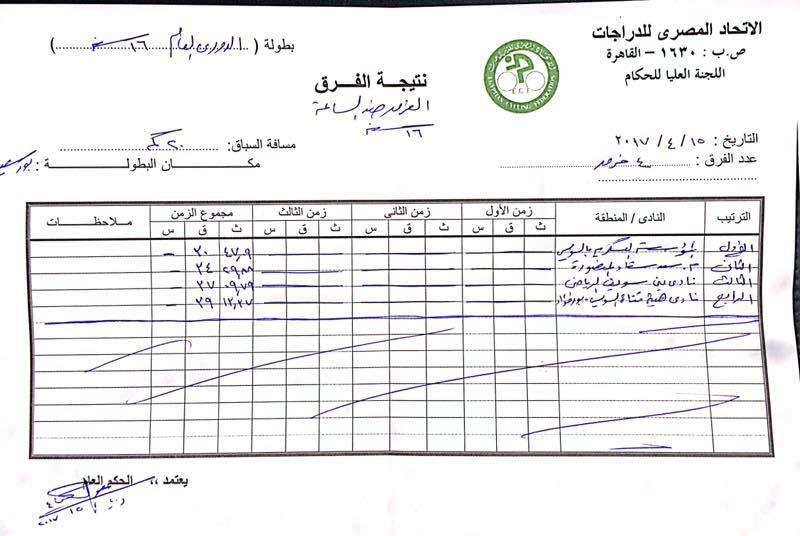 الاتحاد المصرى للدراجات
ص.ب : ١٦٣٠ - القاهرة
اللجنة العليا للحكام
EGYPTIAN CYCLING FEDERATION
E.C.F
بطولة (..الدورى العام ١٦ سنة..)
نتيجة الفرق
الفرق ضد الساعة
١٦ سنة
التاريخ : ١٥ / ٤ / ٢٠١٧
عدد الفرق : ٤ فرق
مسافة السباق: ٢٠ كم
مكان البطولة : بورسعيد
الترتيب النادى / المنطقة زمن الأول زمن الثانى زمن الثالث مجموع الزمن ملاحظات
ث ق س ث ق س ث ق س ث ق س
الأول المؤسسة العسكرية بالسويس ٤٧,٩ ٣٠ -
الثانى ٢٩,٨٨ ٣٤ -
الثالث نادى بنى سويف الرياضى ٠٩,٧٩ ٣٧ -
الرابع نادى هيئة قناة السويس - بورفؤاد ١٢,٣٧ ٣٩ -
يعتمد ,,
الحكم العام
٢٠١٧